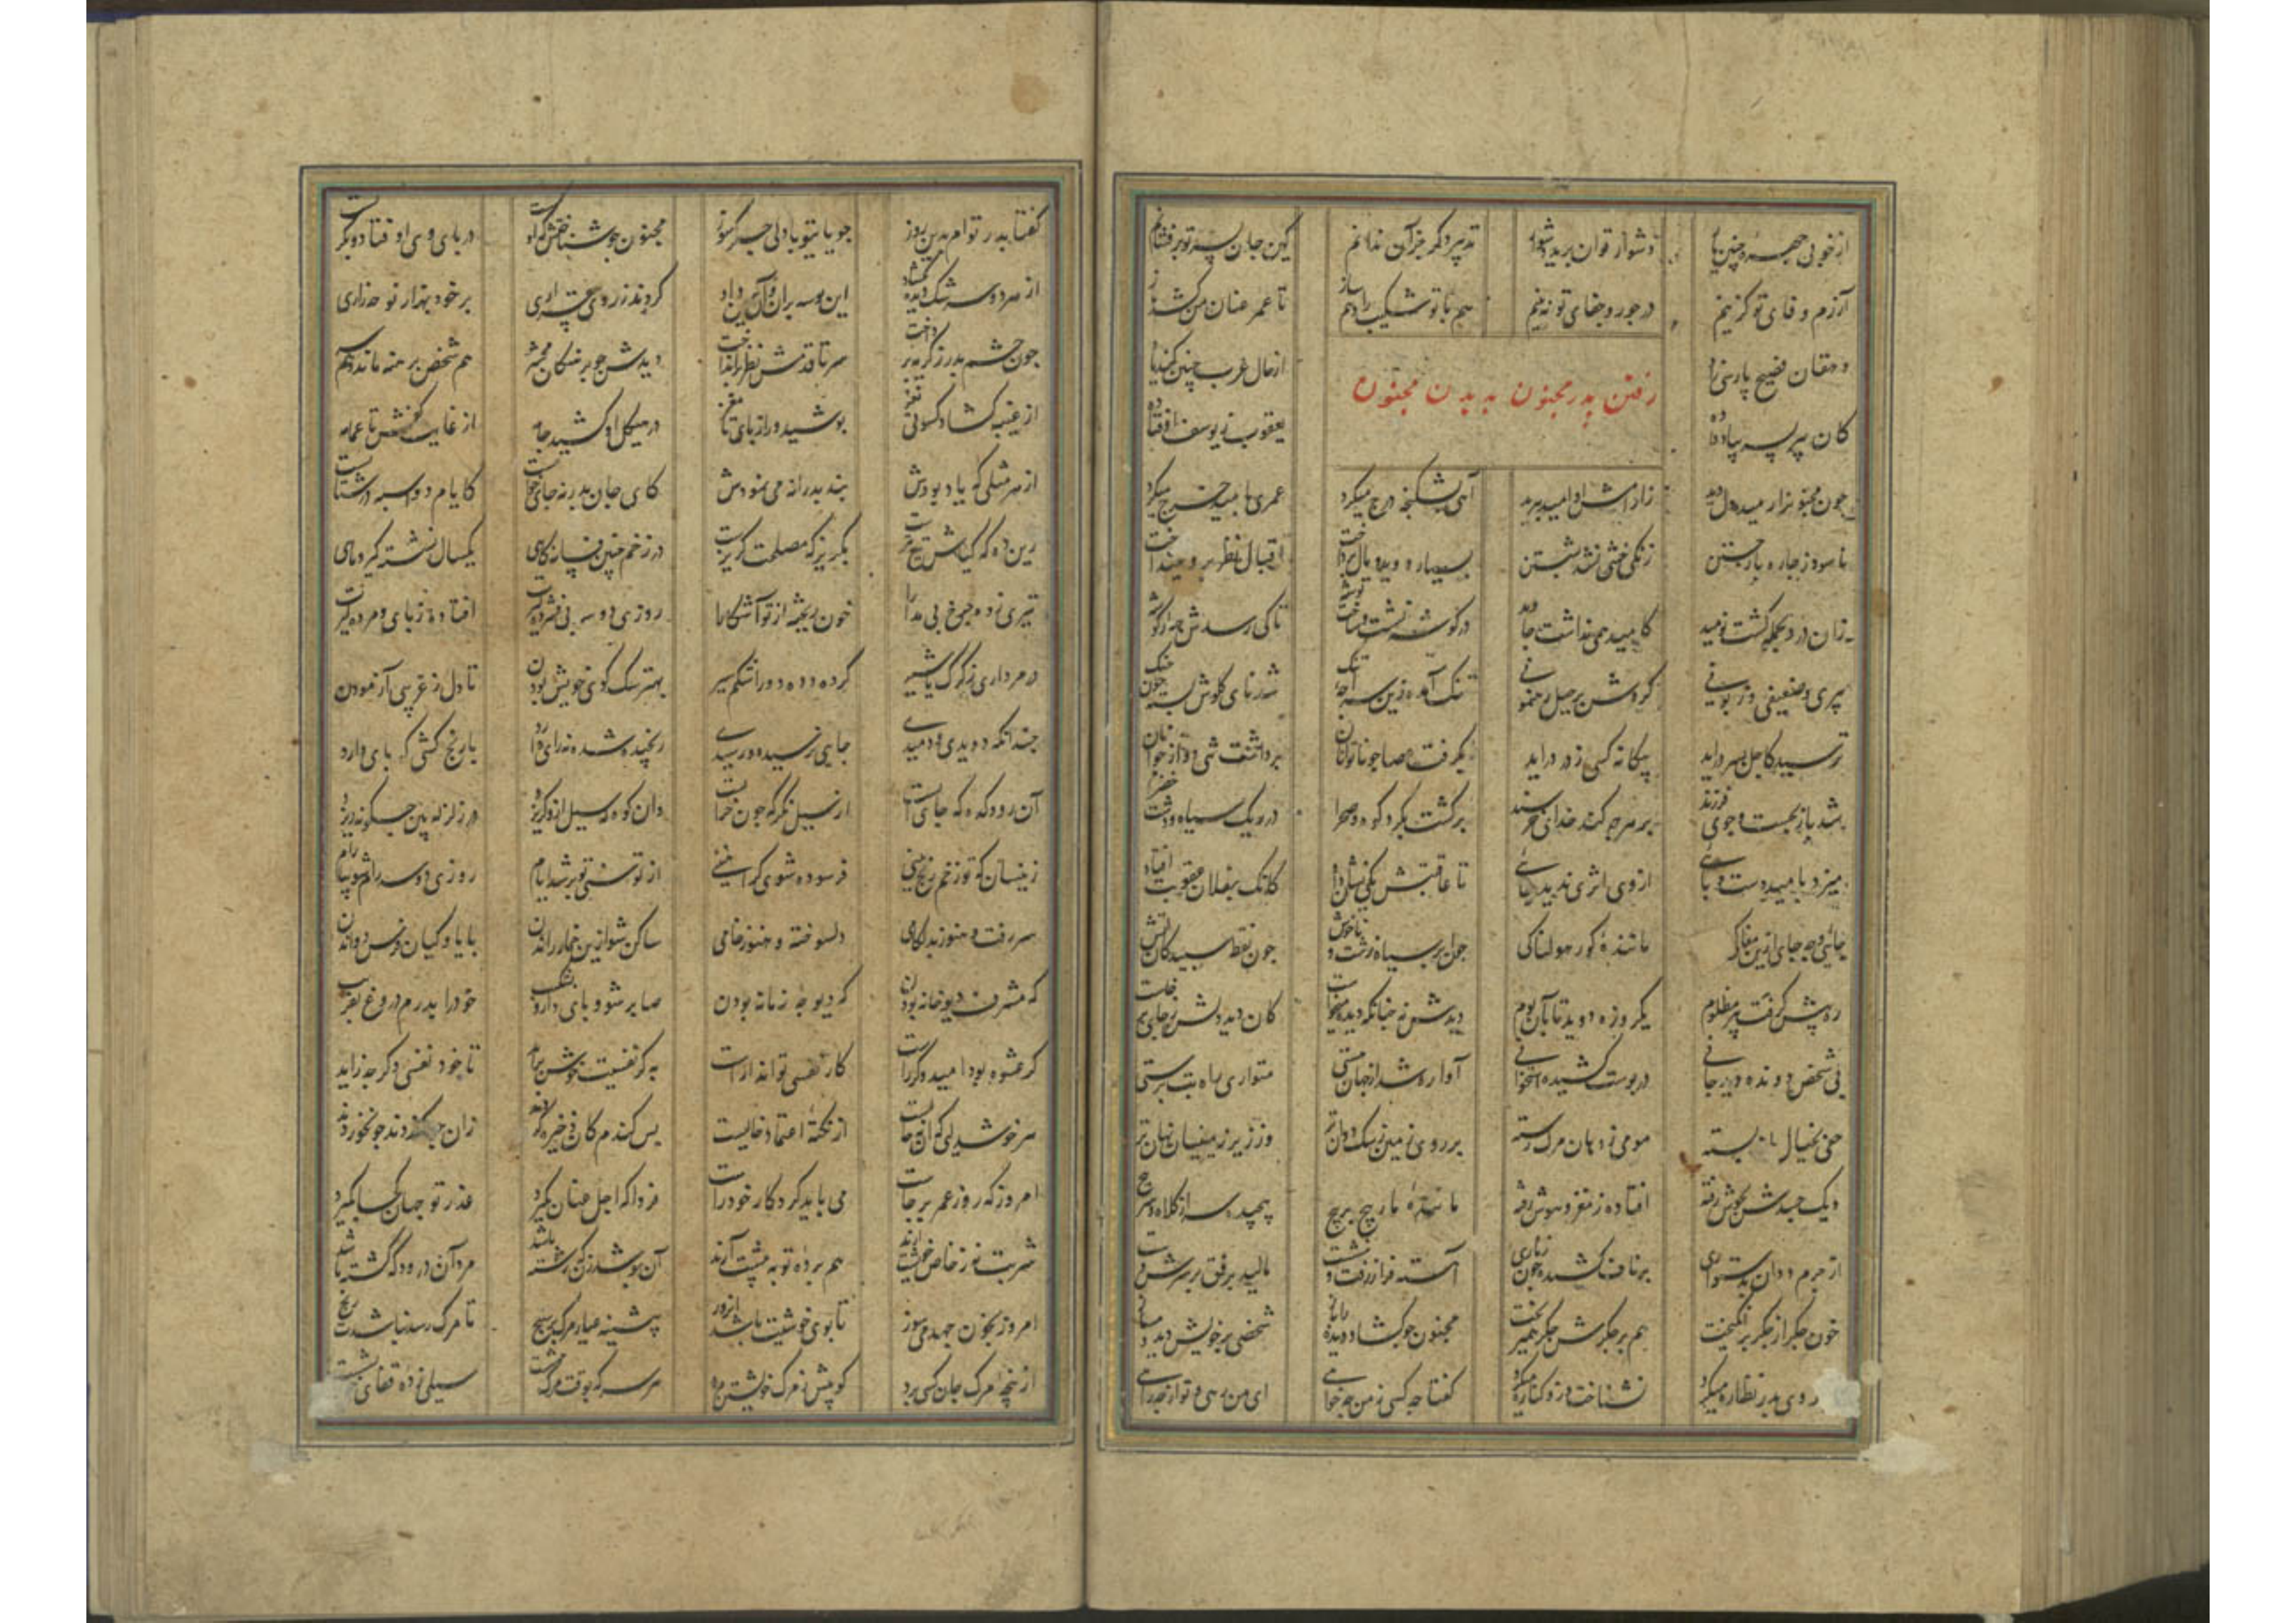 از خوبی چهره چنین یار دشوار توان برید دشوار تدبیر دگر جز آن ندانم کین جان بسر تو برفشانم
آزرم وفای تو گزینم در جور و جفای تو نه بینم هم با تو شکیب را دهم ساز تا عمر عنان من کشد باز
دهقان فصیح پارسی زاد از حال عرب چنین کند یاد
رفتن پدر مجنون بدیدن مجنون
کان پیر پسر بباد داده یعقوب ز یوسف اوفتاده
چون مجنونرا رمیده دل دید زارامش او امید ببرید آهی بشکنجه درج میکرد عمری بامید خرج میکرد
ناسود ز چاره باز جستن زنگی ختنی نشد بشستن بسیار دوید و مال پرداخت اقبال نظر برو نینداخت
زان درد بجمله گشت نومید کامید بهی نداشت جاوید در گوشه نشست و ساخت توشه تا کی رسدش چهار گوشه
پیری و ضعیفی و زبونی کردش برحیل رهنمونی تنک آمد ازین سراچه تنک شد نای گلوش چون
ترسید کاجل بسر دراید بیگانه کسی ز در دراید بگرفت عصا چو ناتوانان برداشت تنی دو از جوانان
شد باز بجست و جوی فرزند بر هرچه کند خدای خرسند برگشت بگرد کوه و صحرا در ریک سیاه و دشت خضرا
میزد بامید دست و پائی از وی اثری ندید جائی تا عاقبتش یکی نشان داد کانک بفلان عقوبت افتاد
جائی و چه جای ازین مغاکی ماننده کور هولناکی چون ابر سیاه زشت و ناخوش چون نفط سپید کان آتش
ره پیش گرفت پیر مظلوم یکروزه دوید تا بآن بوم دیدش نه چنانکه دیده میخواست کان دید دلش ز جای برخاست
بی شخص دونده دید جانی در پوست کشیده استخوانی آواره شده از جهان هستی متواری راه بت پرستی
خونی بخیال باز بسته مومی ز دهان مرک رسته بر روی زمین ز سک دوان تر وز زیر زمینیان نهان تر
دیک جسدش ز جوش رفته افتاده ز مغز و هوش رفته ماننده مار پیچ بر پیچ پیچیده سر از کلاه و سرپیچ
از چرم ددان بدستواری بر ناف کشیده چون ازاری آهسته فراز رفت و بنشست مالید برفق بر سرش دست
خون جگر از جگر برانگیخت هم بر جگرش جگر همی ریخت مجنون چو گشاد دیده را باز شخصی بر خویش دید
روی پدر نظاره میکرد نشناخت درو کناره میکرد گفتا چه کسی ز من چه خواهی ای من رهی تو از چه راهی
گفتا پدر توام بدین روز جویای تو با دلی جگرسوز مجنون چو شناختش که او کیست در پای وی اوفتاد و بگریست
از هر دو سرشک دیده بگشاد این بوسه بران و آن برین داد کردند ز روی بیقراری بر خود بهزار نوحه زاری
چون چشم پدر ز گریه پرداخت سر تا قدمش نظر برانداخت دیدش چو برهنگان محشر هم شخص برهنه مانده هم سر
از عیبه گشاد کسوتی نغز پوشید درو ز پای تا مغز در هیکل او کشید جامه از غایت کفش تا عمامه
از هر مثلی که یاد بودش پندی پدرانه می نمودش کای جان پدر نه جای خوابست کایام دو اسبه در شتابست
زین ره که گیاش تیغ تیزست بگریز که مصلحت گریزست در زخم چنین نشانه گاهی یکسال نشسته گیر و ماهی
تیری زده چرخ بی مدارا خون ریخته از تو آشکارا روزی دو سه پی فشرده گیرت افتاده ز پای و مرده گیرت
در مرداری ز گرگ یا شیر کرده دد و دد را شکم سیر بهتر سک کوی خویش بودن تا ذل غریبی آزمودن
چندانکه دویدی و دویدی جایی نرسیده و رسیدی رنجیده شدن نه رای دارد با رنج کشی که پای دارد
آن رودکده که جای آبست از سیل نگر که چون خرابست وان کوه که سیل ازو گریزد در زلزله بین چگونه ریزد
زینسان که تو زخم رنج بینی فرسوده شوی گر آهنینی از توسنی تو پر شد ایام روزی دو سه رام شو بیارام
سر رفت و هنوز بدلگامی دلسوخته و هنوز خامی ساکن شو ازین جمازه راندن با یاوگیان فرس دواندن
گه مشرف دیوخانه بودن گه دیوچه زمانه بودن صابر شو و پای دار و بشکیب خود را بدم دروغ بفریب
گر عشوه بود امید گه راست کار نفسی تواند آراست به گر نفسیت خوش براید تا خود نفس دگر چه زاید
هر خوشدلی که آن نه حالیست از نکته اعتماد خالیست بس گندم کان ذخیره کردند زان جو که زدند جو نخوردند
امروز که روز عمر برجاست می باید کرد کار خود راست فردا که اجل عنان بگیرد عذر تو جهان کجا پذیرد
شربت نه ز خاص خویشت آرند هم برده تو به پیشت آرند آن پوشد زن که رشته باشد مرد آن درود که کشته باشد
امروز بخور جهد می سوز تا بوی خوشیت باشد انروز پیشینه عیار مرک بر سنج تا مرک رسد نباشدت رنج
از پنجه مرک جان کسی برد کو پیش ز مرک خویشتن مرد هر سر که بوقت مرگ سیلی زده قفای